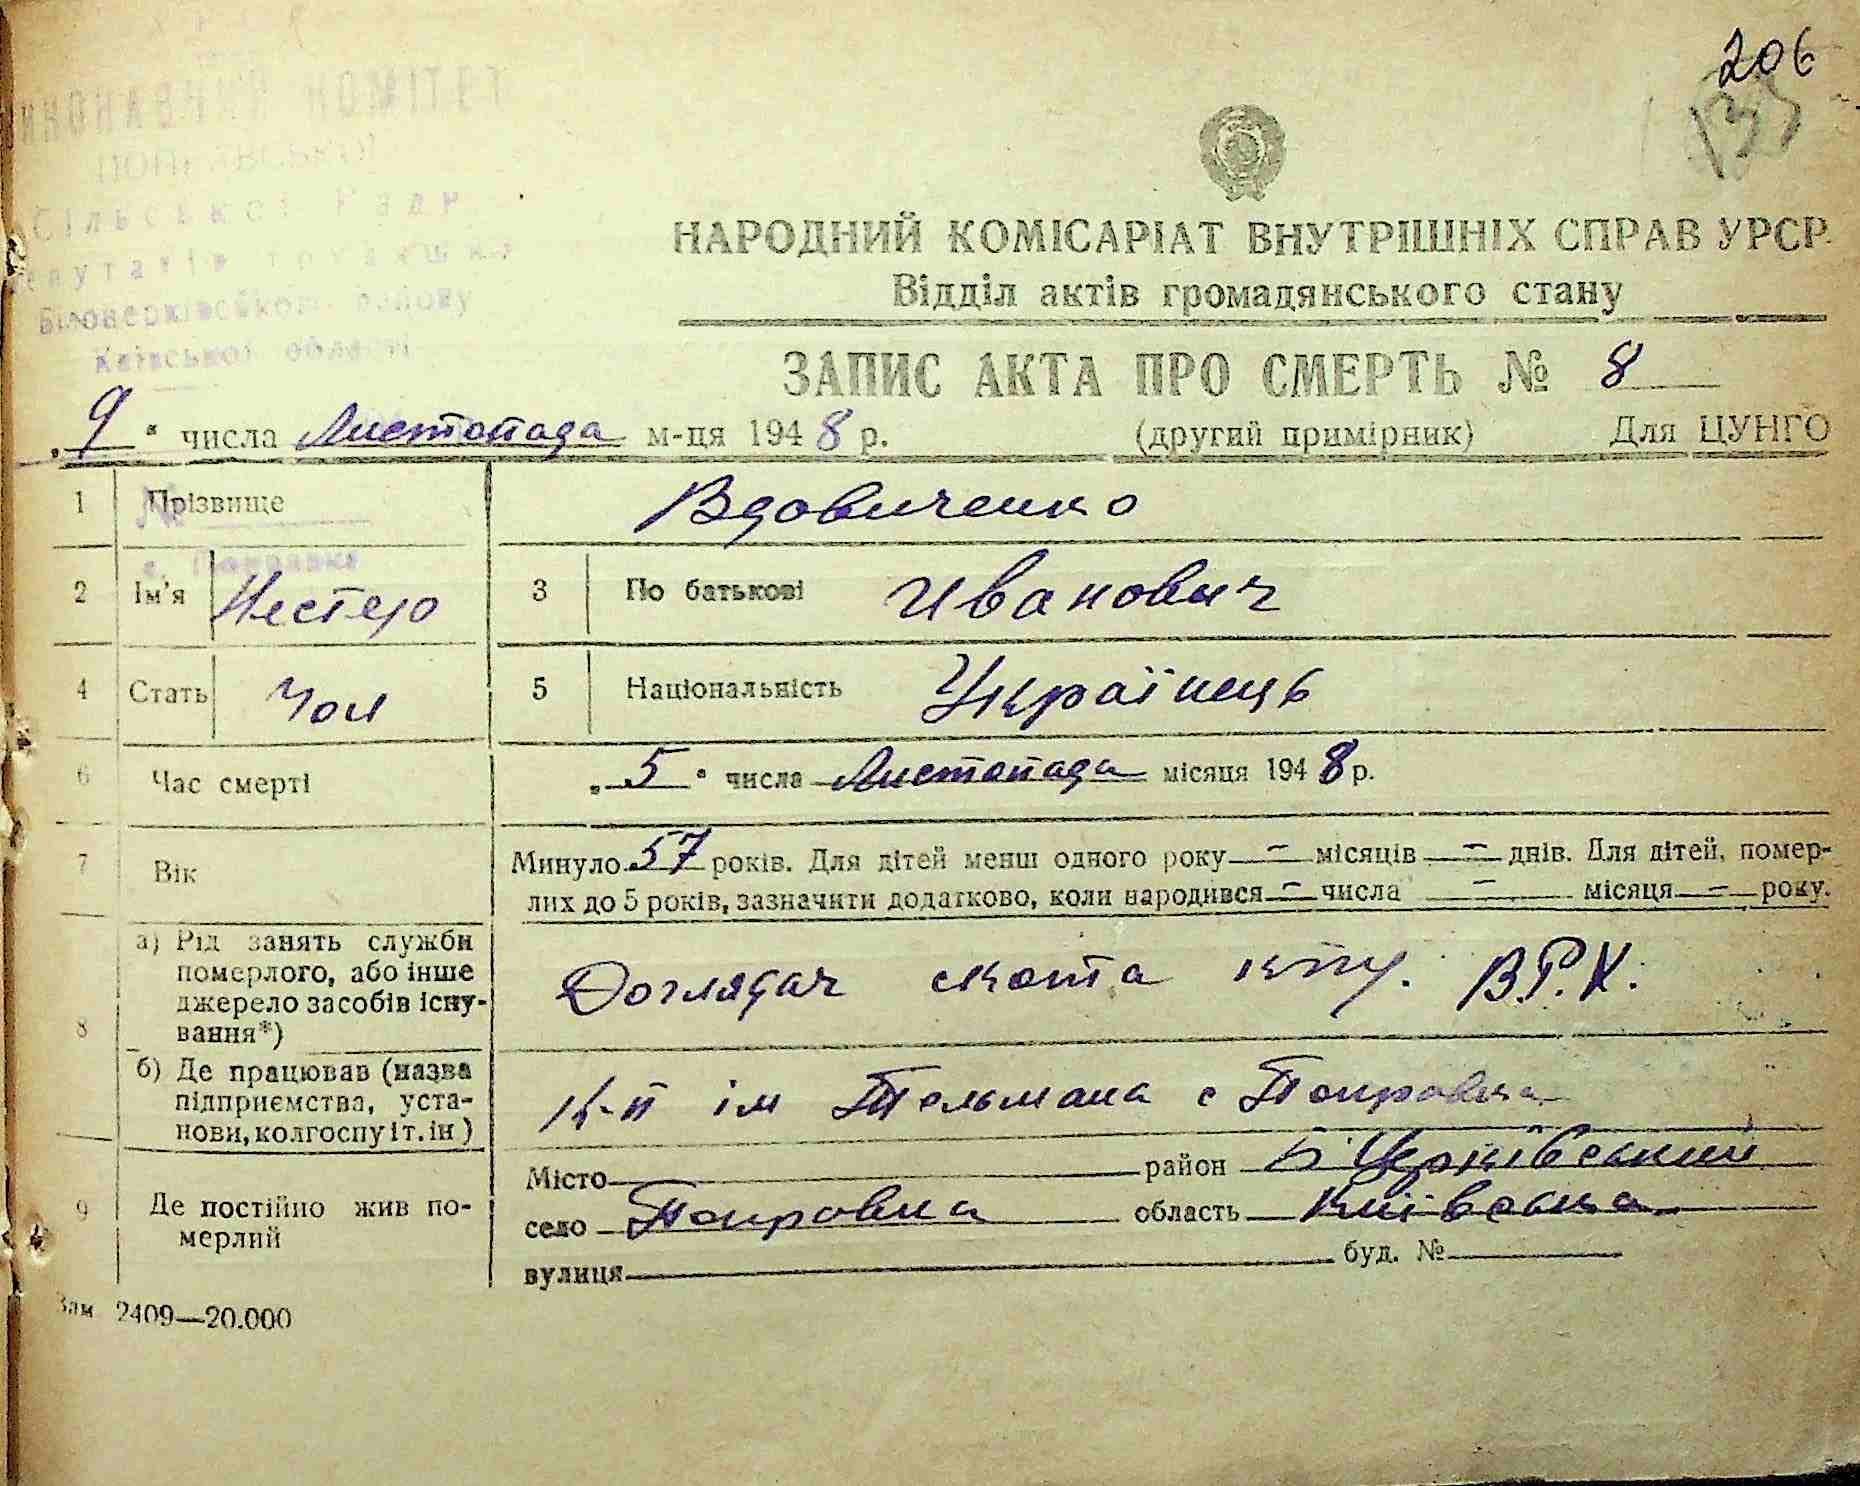 206
133
ВИКОНАВЧИЙ КОМІТЕТ
Сільської Ради
депутатів трудящих
Білоцерківського району
Київської області
НАРОДНИЙ КОМІСАРІАТ ВНУТРІШНІХ СПРАВ УРСР
Відділ актів громадянського стану
ЗАПИС АКТА ПРО СМЕРТЬ № 8
„9" числа Листопада м-ця 1948 р. (другий примірник) Для ЦУНГО
1 Прізвище Вдовиченко
№
с. Поправка
2 Ім'я Нестер 3 По батькові Иванович
4 Стать Чол 5 Національність Українець
6 Час смерті „5" числа Листопада місяця 1948 р.
7 Вік Минуло 57 років. Для дітей менш одного року — місяців — днів. Для дітей, помер-
лих до 5 років, зазначити додатково, коли народився — числа — місяця — року.
8 а) Рід занять служби
померлого, або інше
джерело засобів існу-
вання*)
Доглядач скота кту. В.Р.Х.
б) Де працював (назва
підприємства, уста-
нови, колгоспу і т. ін)
К-п ім Тельмана с Поправка
9 Де постійно жив по-
мерлий
Місто район Б Церківський
село Поправка область Київська
вулиця буд. №
Зам 2409—20.000